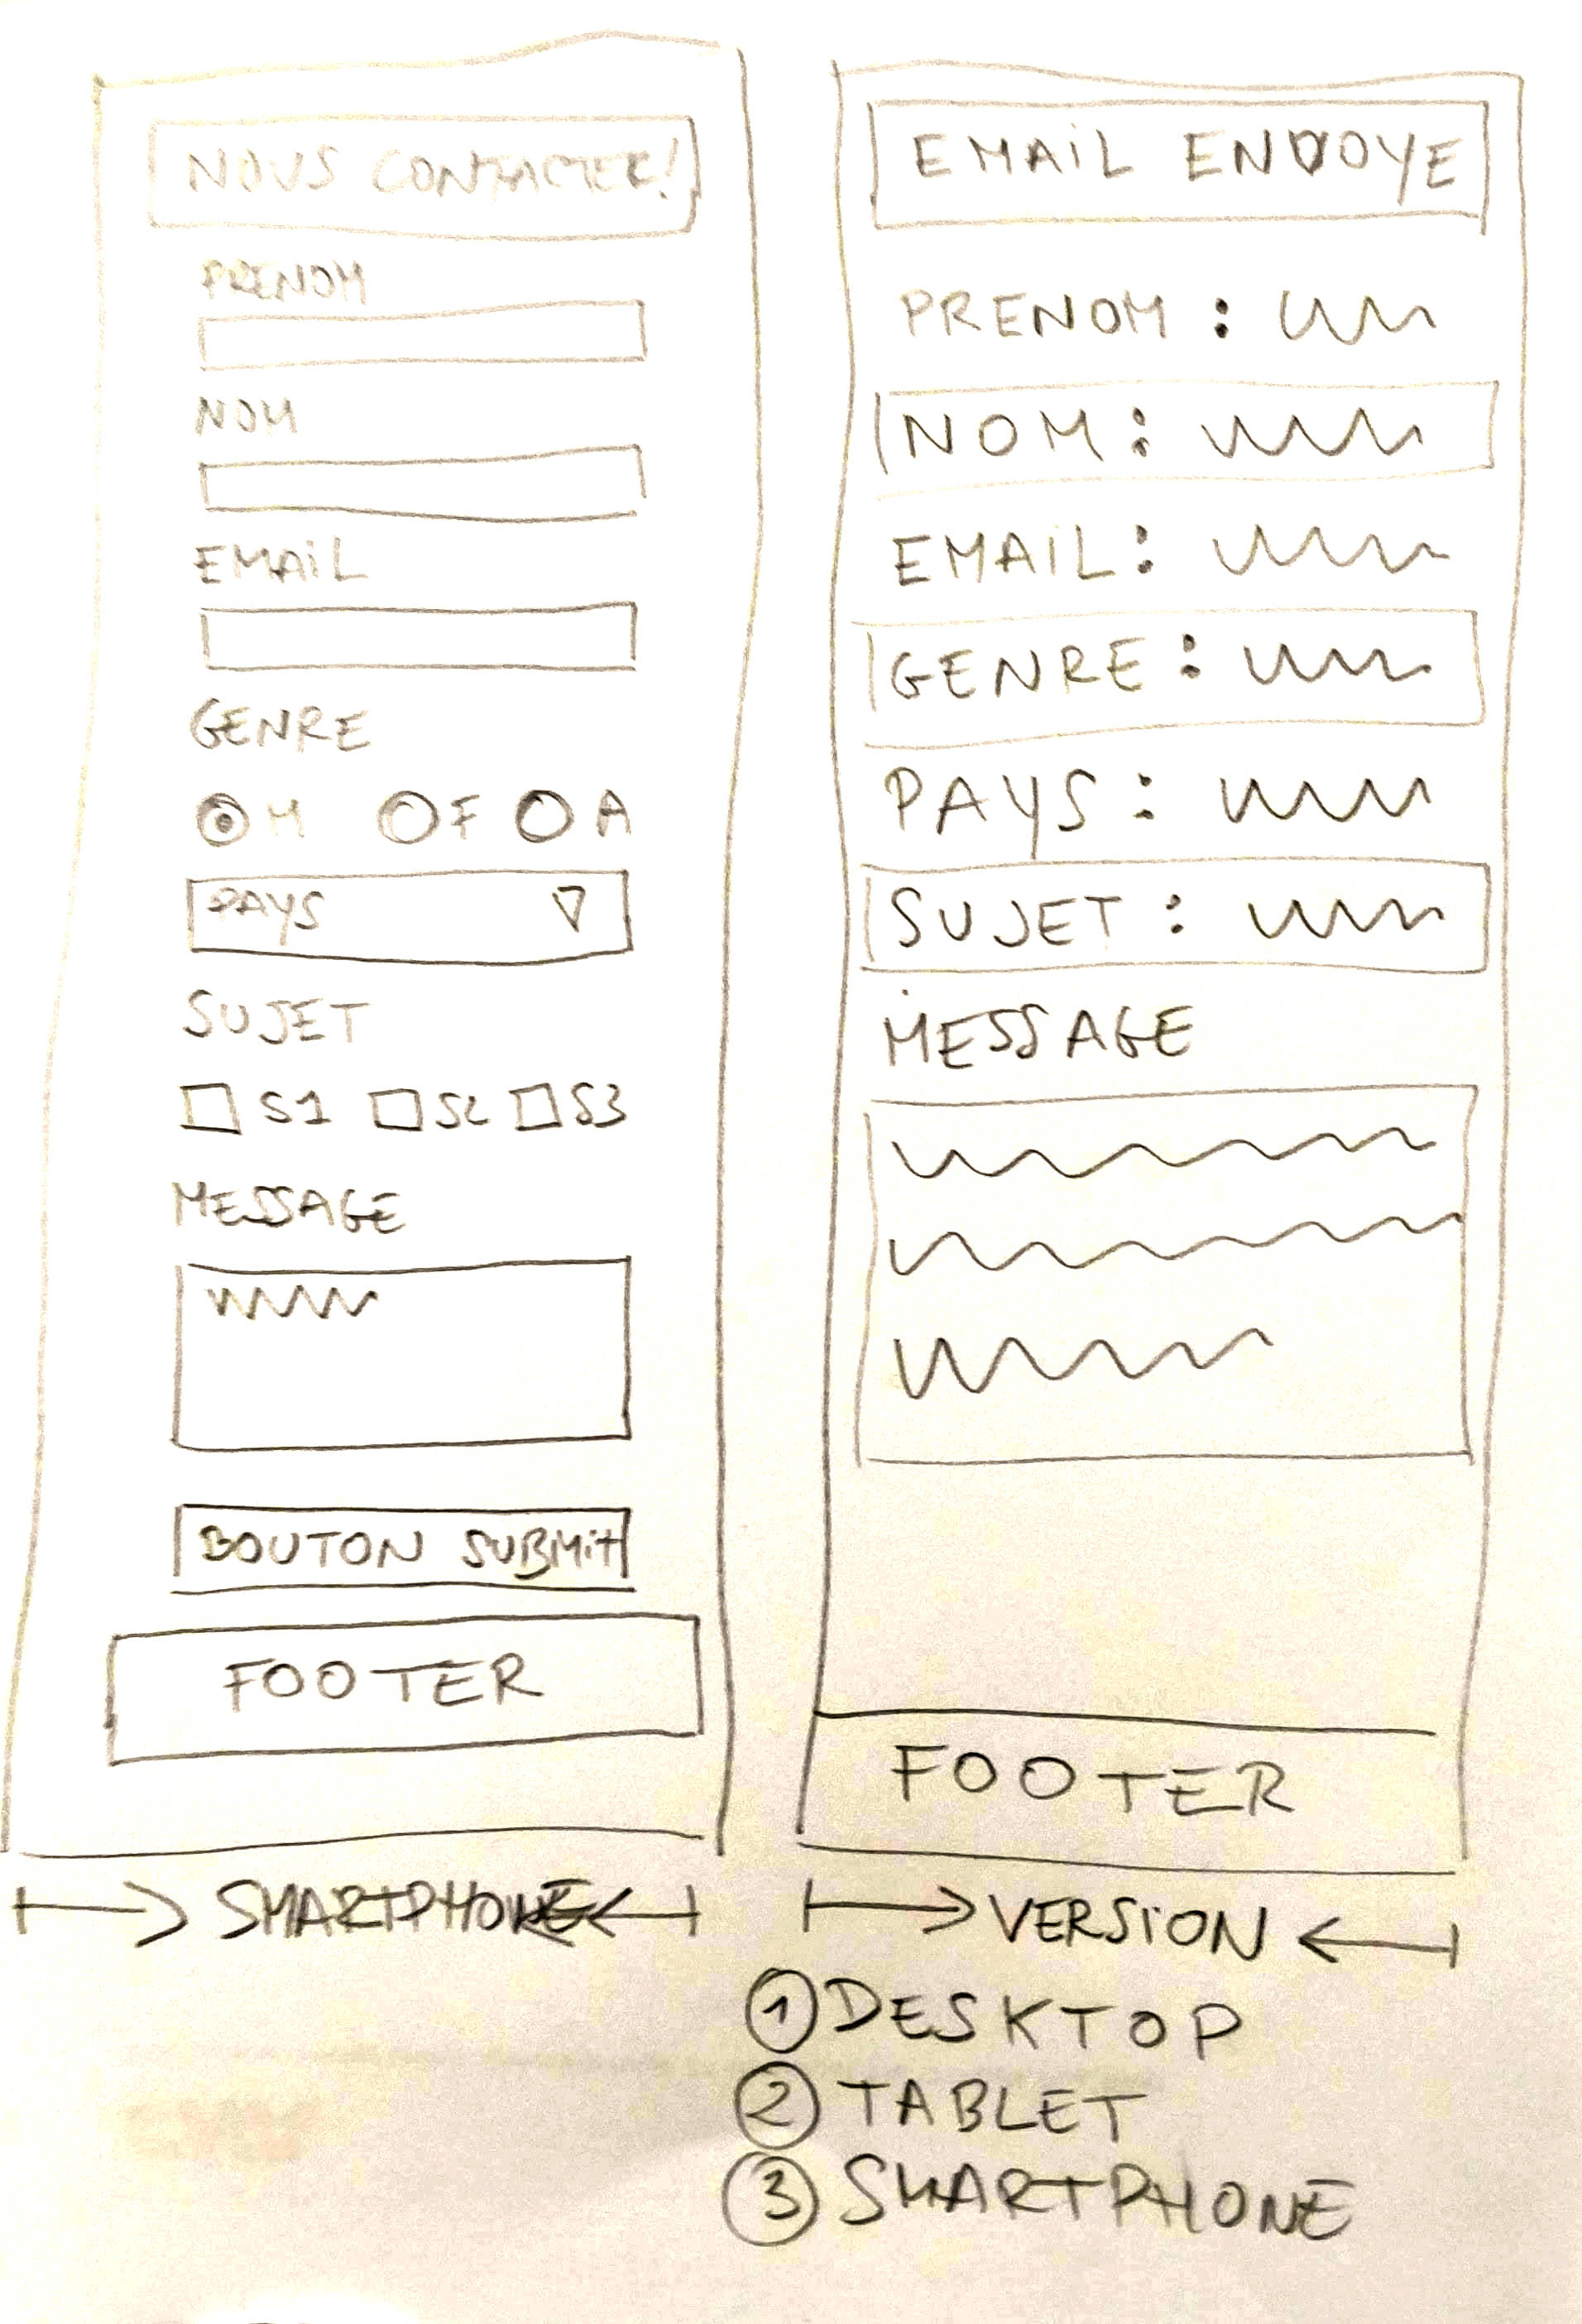 NOUS CONTACTER!
PRENOM
NOM
EMAiL
GENRE
M F A
PAYS
SUJET
S1 S2 S3
MESSAGE
BOUTON SUBMiT
FOOTER
SMARTPHONE
EMAiL ENVOYE
PRENOM :
NOM :
EMAiL :
GENRE :
PAYS :
SUJET :
MESSAGE
FOOTER
VERSiON
1 DESKTOP
2 TABLET
3 SMARTPHONE